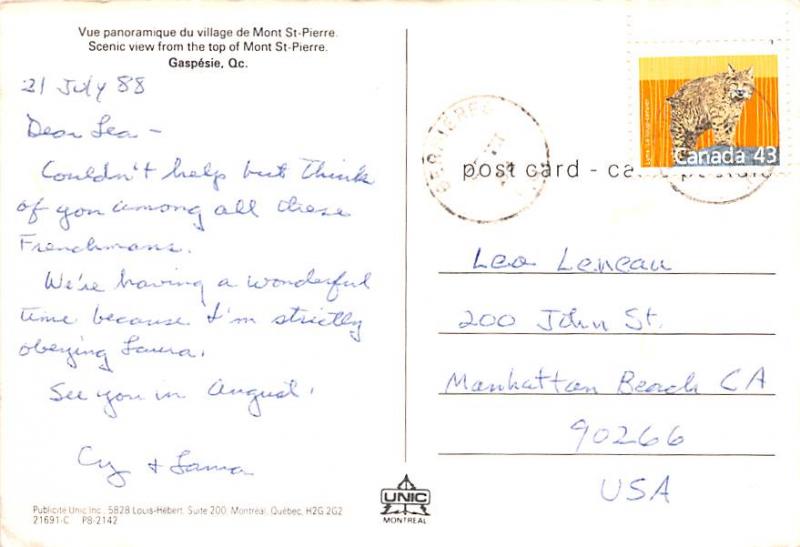 Vue panoramique du village de Mont St-Pierre.
Scenic view from the top of Mont St-Pierre.
Gaspésie, Qc.
21 July 88
Dear Lea -
Couldn't help but think
of you among all these
Frenchmans.
We're having a wonderful
time because I'm strictly
obeying Laura.
See you in August.
Cy + Laura
Publicité Unic Inc., 5828 Louis-Hébert, Suite 200, Montréal, Québec, H2G 2G2
21691-C P8-2142
UNIC
MONTREAL
Canada 43
post card - ca postale
Lea Leneau
200 John St.
Manhattan Beach CA
90266
USA